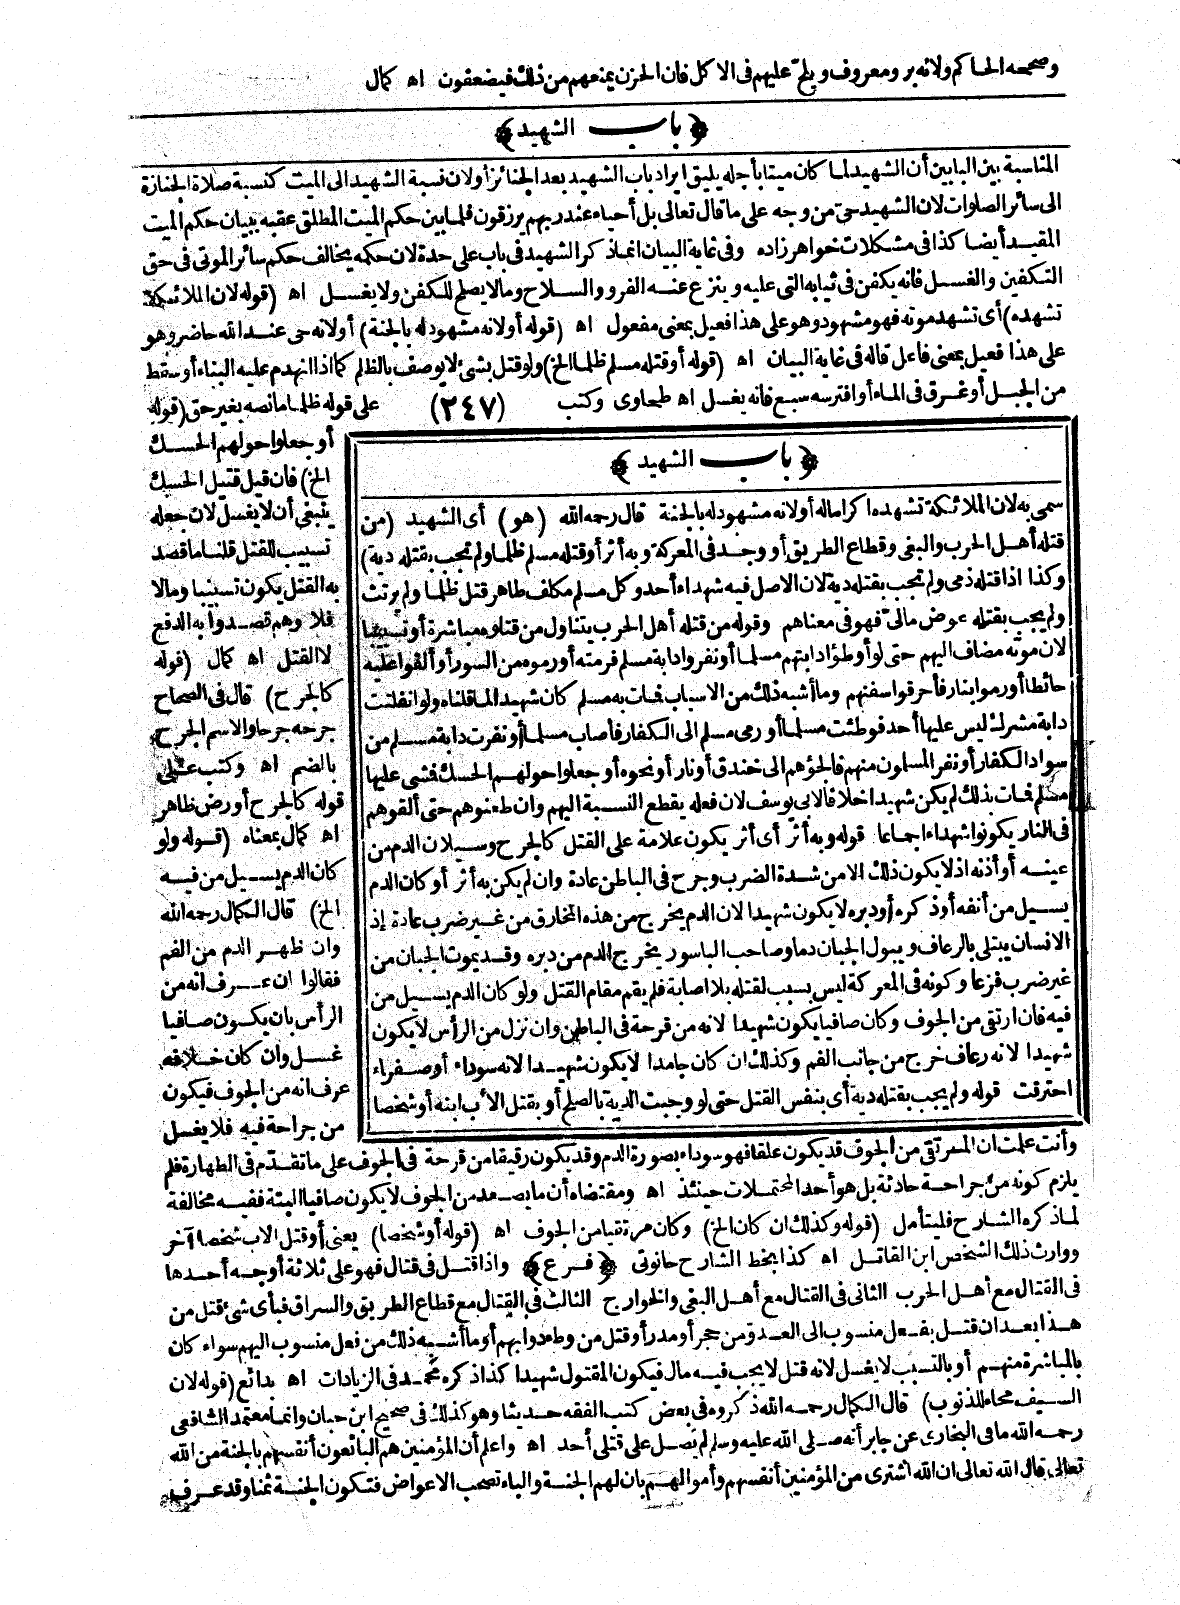 وصححه الحاكم ولانه بر ومعروف ويلح عليهم فى الاكل فان الحزن يمنعهم من ذلك فيضعفون اه كمال
﴿ باب الشهيد ﴾
المناسبة بين البابين أن الشهيد لما كان ميتا بأجله يليق ايراد باب الشهيد بعد الجنائز أولان نسبة الشهيد الى الميت كنسبة صلاة الجنازة
الى سائر الصلوات لان الشهيد حى من وجه على ما قال تعالى بل أحياء عند ربهم يرزقون فلما بين حكم الميت المطلق عقبه ببيان حكم الميت
المقيد أيضا كذا فى مشكلات خواهر زاده وفى غاية البيان انما ذكر الشهيد فى باب على حدة لان حكمه يخالف حكم سائر الموتى فى حق
التكفين والغسل فانه يكفن فى ثيابه التى عليه وينزع عنه الفرو والسلاح وما لا يصلح للكفن ولا يغسل اه (قوله لان الملائكة
تشهده) أى تشهد موته فهو مشهود وهو على هذا فعيل بمعنى مفعول اه (قوله أولانه مشهود له بالجنة) أولانه حى عند الله حاضر وهو
على هذا فعيل بمعنى فاعل قاله فى غاية البيان اه (قوله أو قتله مسلم ظلما الخ) ولو قتل بشئ لا يوصف بالظلم كما اذا انهدم عليه البناء أو سقط
من الجبل أو غرق فى الماء أو افترسه سبع فانه يغسل اه طحاوى وكتب (٢٤٧) على قوله ظلما مانصه بغير حق (قوله
أو جعلوا حولهم الحسك
الخ) فان قيل قتيل الحسك
ينبغى أن لا يغسل لان جعله
تسبيب للقتل قلنا ما قصد
به القتل يكون تسبيبا ومالا
فلا وهم قصدوا به الدفع
لا القتل اه كمال (قوله
كالجرح) قال فى الصحاح
جرحه جرحا والاسم الجرح
بالضم اه وكتب على
قوله كالجرح أو رض ظاهر
اه كمال بمعناه (قوله ولو
كان الدم يسيل من فيه
الخ) قال الكمال رحمه الله
وان ظهر الدم من الفم
فقالوا ان عرف انه من
الرأس بان يكون صافيا
غسل وان كان خلافه
عرف انه من الجوف فيكون
من جراحة فيه فلا يغسل
﴿ باب الشهيد ﴾
سمى به لان الملائكة تشهده اكراما له أولانه مشهود له بالجنة قال رحمه الله (هو) أى الشهيد (من
قتله أهل الحرب والبغى وقطاع الطريق أو وجد فى المعركة وبه أثر أو قتله مسلم ظلما ولم تجب بقتله دية)
وكذا اذا قتله ذمى ولم تجب بقتله دية لان الاصل فيه شهداء أحد وكل مسلم مكلف طاهر قتل ظلما ولم يرتث
ولم يجب بقتله عوض مالى فهو فى معناهم وقوله من قتله أهل الحرب يتناول من قتلوه مباشرة أو تسبيبا
لان موته مضاف اليهم حتى لو أوطؤا دابتهم مسلما أو نفروا دابة مسلم فرمته أو رموه من السور أو ألقوا عليه
حائطا أو رموا بنار فأحرقوا سفنهم وما أشبه ذلك من الاسباب فمات به مسلم كان شهيدا لما قلناه ولو انفلتت
دابة مشرك ليس عليها أحد فوطئت مسلما أو رمى مسلم الى الكفار فأصاب مسلما أو نفرت دابة مسلم من
سواد الكفار أو نفر المسلمون منهم فالجؤهم الى خندق أو نار أو نحوه أو جعلوا حولهم الحسك فمشى عليها
مسلم فمات بذلك لم يكن شهيدا خلافا لابى يوسف لان فعله يقطع النسبة اليهم وان طعنوهم حتى ألقوهم
فى النار يكونوا شهداء اجماعا قوله وبه أثر أى أثر يكون علامة على القتل كالجرح وسيلان الدم من
عينه أو أذنه اذ لا يكون ذلك الا من شدة الضرب وجرح فى الباطن عادة وان لم يكن به أثر أو كان الدم
يسيل من أنفه أو ذكره أو دبره لا يكون شهيدا لان الدم يخرج من هذه المخارق من غير ضرب عادة إذ
الانسان يبتلى بالرعاف ويبول الجبان دما وصاحب الباسور يخرج الدم من دبره وقد يموت الجبان من
غير ضرب فزعا وكونه فى المعركة ليس بسبب لقتله بلا اصابة فلم يقم مقام القتل ولو كان الدم يسيل من
فيه فان ارتقى من الجوف وكان صافيا يكون شهيدا لانه من قرحة فى الباطن وان نزل من الرأس لا يكون
شهيدا لانه رعاف خرج من جانب الفم وكذلك ان كان جامدا لا يكون شهيدا لانه سوداء أو صفراء
احترقت قوله ولم يجب بقتله دية أى بنفس القتل حتى لو وجبت الدية بالصلح أو بقتل الاب ابنه أو شخصا
وأنت علمت ان المرتقى من الجوف قد يكون علقا فهو سوداء بصورة الدم وقد يكون رقيقا من قرحة فى الجوف على ما تقدم فى الطهارة فلم
يلزم كونه من جراحة حادثة بل هو أحد المحتملات حينئذ اه ومقتضاه أن ما يصعد من الجوف لا يكون صافيا البتة ففيه مخالفة
لما ذكره الشارح فليتأمل (قوله وكذلك ان كان الخ) وكان مرتقيا من الجوف اه (قوله أو شخصا) يعنى أو قتل الاب شخصا آخر
ووارث ذلك الشخص ابن القاتل اه كذا بخط الشارح حانوتى ﴿ فرع ﴾ واذا قتل فى قتال فهو على ثلاثة أوجه أحدها
فى القتال مع أهل الحرب الثانى فى القتال مع أهل البغى والخوارج الثالث فى القتال مع قطاع الطريق والسراق فبأى شئ قتل من
هذا بعد ان قتل بفعل منسوب الى العدو من حجر أو مدر أو قتل من وطء دوابهم أو ما أشبه ذلك من فعل منسوب اليهم سواء كان
بالمباشرة منهم أو بالتسبب لا يغسل لانه قتل لا يجب فيه مال فيكون المقتول شهيدا كذا ذكره محمد فى الزيادات اه بدائع (قوله لان
السيف محاء للذنوب) قال الكمال رحمه الله ذكروه فى بعض كتب الفقه حديثا وهو كذلك فى صحيح ابن حبان وانما معتمد الشافعى
رحمه الله ما فى البخارى عن جابر أنه صلى الله عليه وسلم لم يصل على قتلى أحد اه واعلم أن المؤمنين هم البائعون أنفسهم بالجنة من الله
تعالى قال الله تعالى ان الله اشترى من المؤمنين أنفسهم وأموالهم بان لهم الجنة والباء تصحب الاعواض فتكون الجنة ثمنا وقد عرف